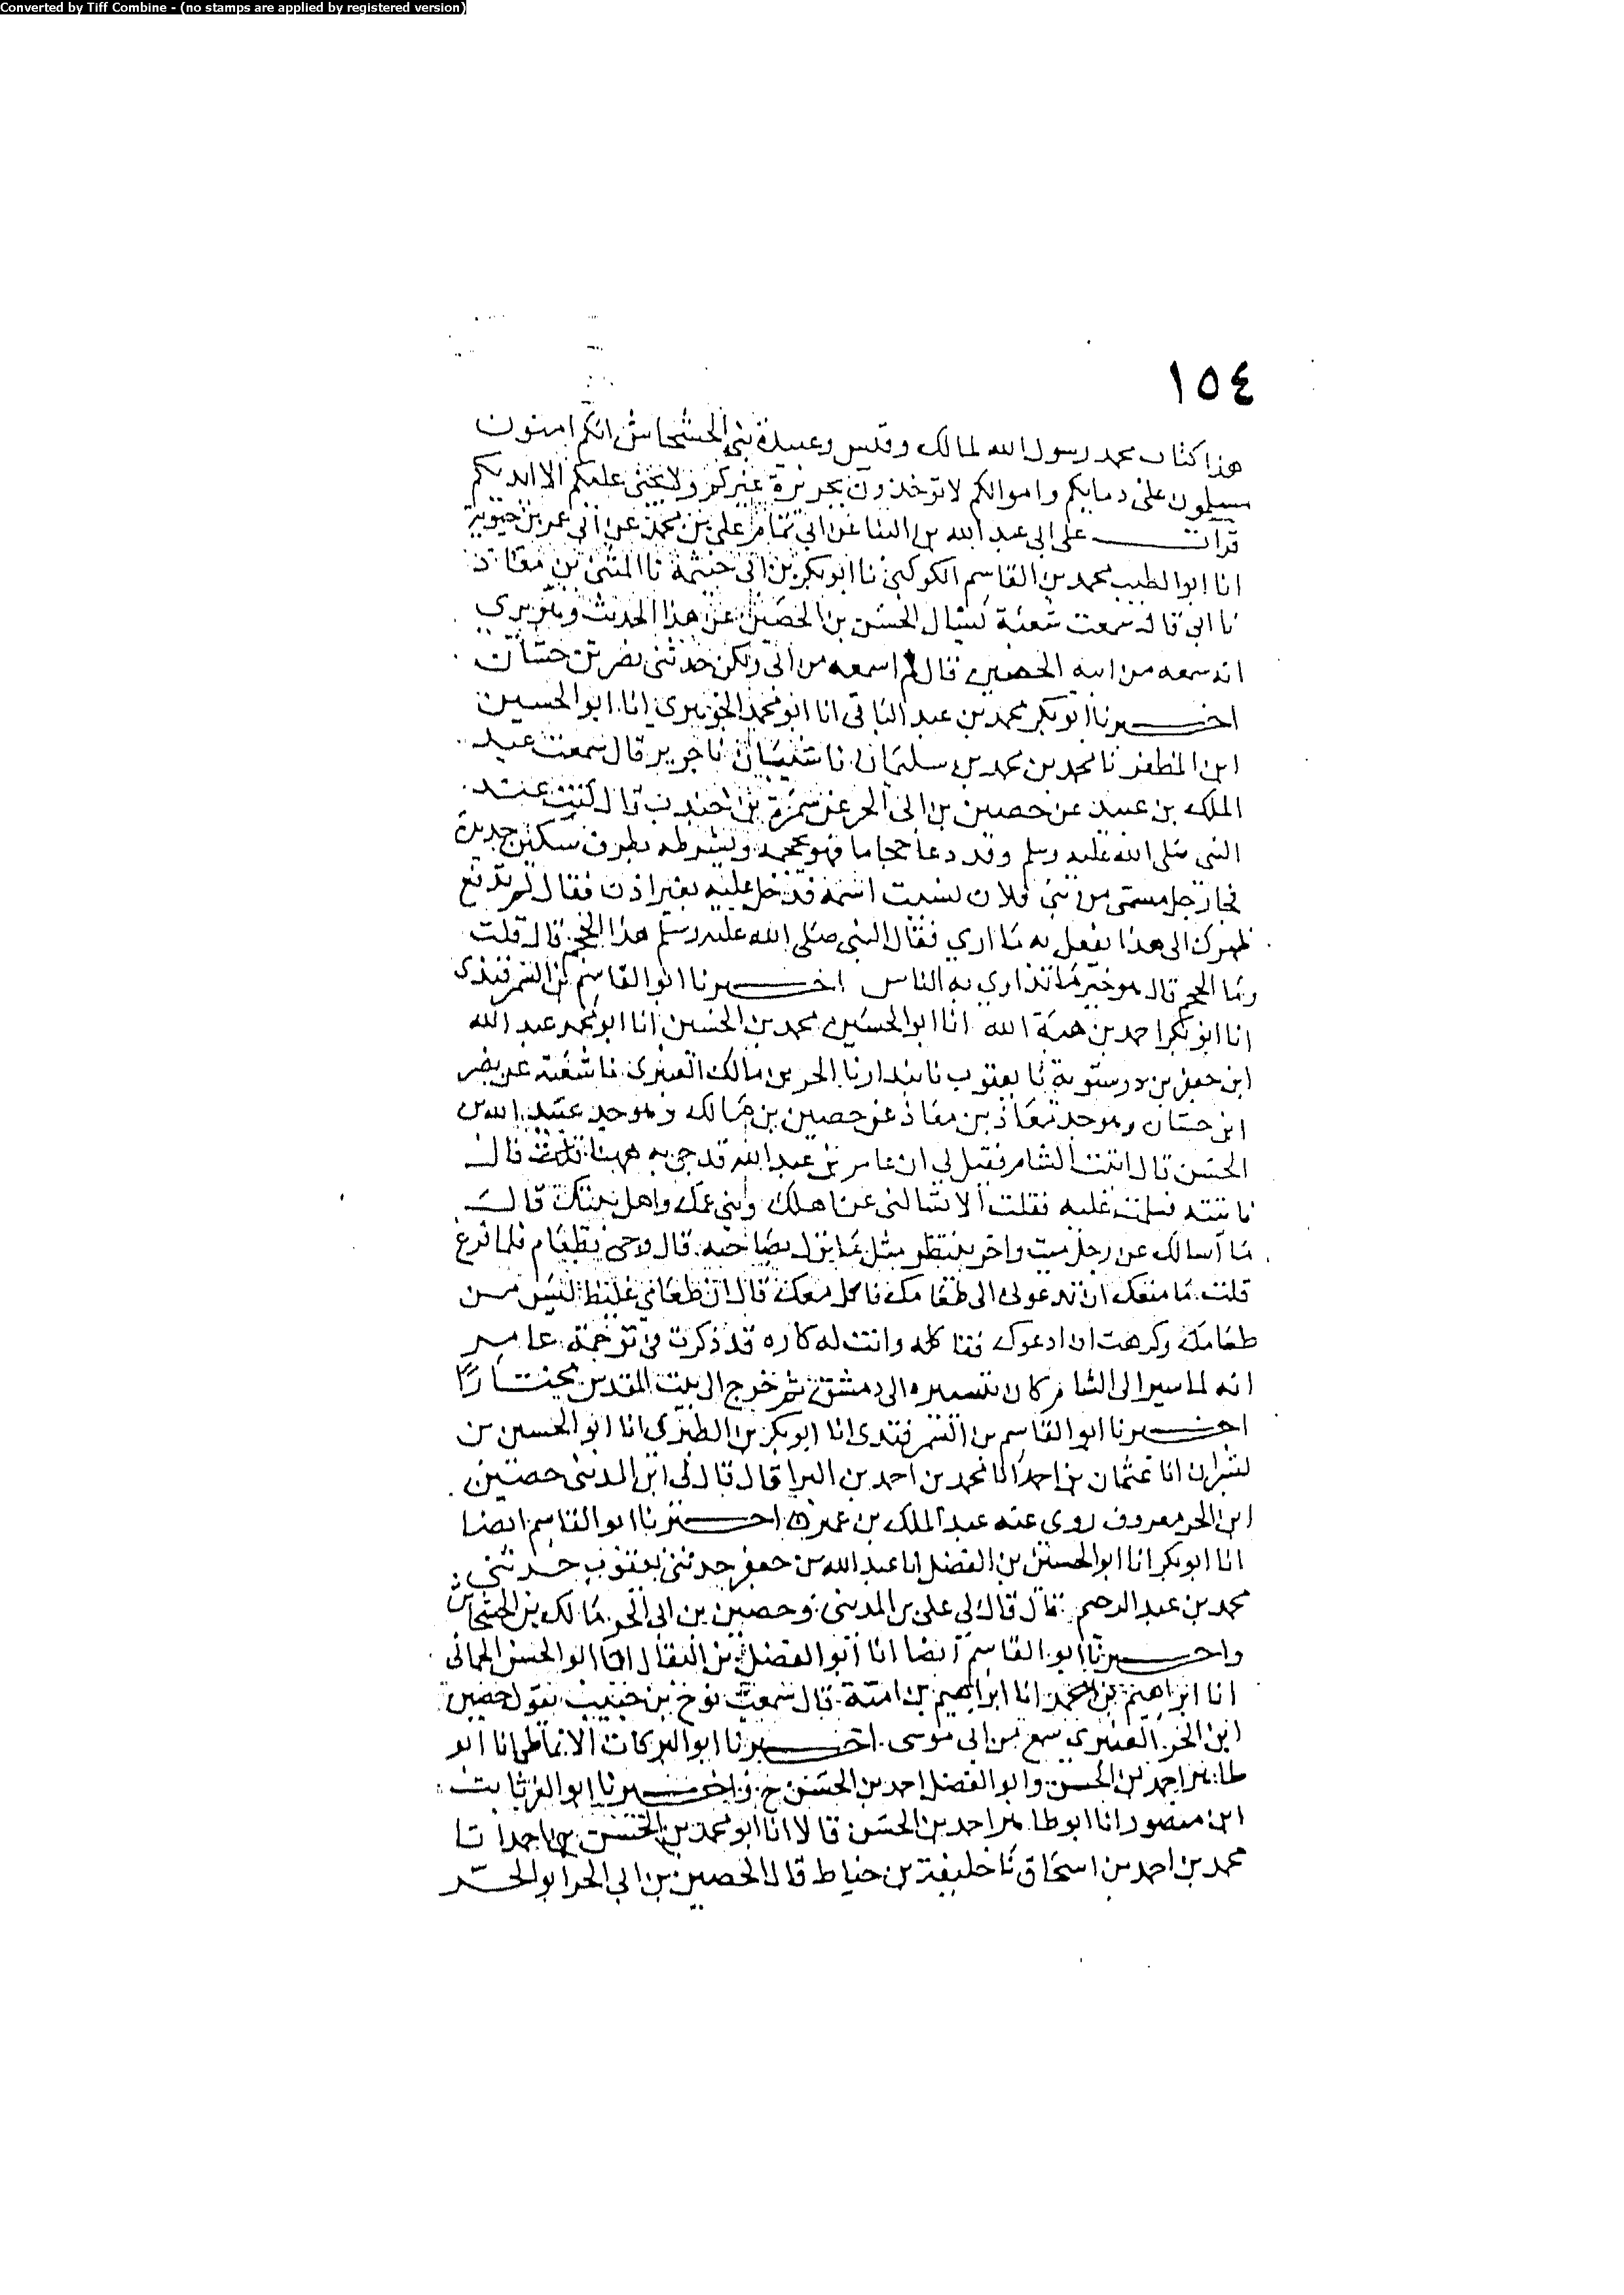 Converted by Tiff Combine - (no stamps are applied by registered version)
١٥٤
هذا كتاب محمد رسول الله لمالك وقيس وعبيدة بني الخشخاش انكم امنون
مسلمون على دمايكم واموالكم لا توخذون بجريرة غيركم ولا يجني عليكم الا ايديكم
قرات على ابي عبد الله بن البنا عن ابي تمام علي بن محمد عن ابي عمر بن حيوية
انا ابو الطيب محمد بن القاسم الكوكبي نا ابو بكر بن ابي خيثمة نا المثنى بن معاذ
نا ابي قال سمعت شعبة يسال الحسن بن الحصين عن هذا الحديث وهو يري
انه سمعه من ابيه الحصين قال لم اسمعه من ابي ولكن حدثني نصر بن حسان
اخبرنا ابو بكر محمد بن عبد الباقي انا ابو محمد الجوهري انا ابو الحسين
ابن المظفر نا محمد بن محمد بن سليمان نا شيبان نا جرير قال سمعت عبد
الملك بن عمير عن حصين بن ابي الحر عن سمرة بن جندب قال كنت عند
النبي صلى الله عليه وسلم وقد دعا حجاما فهو يحجمه ويشرطه بطرف سكين حديدة
فجا رجل مسمى من بني فلان نسيت اسمه فدخل عليه بغير اذن فقال لم تدفع
ظهرك الى هذا يفعل به ما اري فقال النبي صلى الله عليه وسلم هذا الحجم قال قلت
وما الحجم قال هو خير ما تداوي به الناس اخبرنا ابو القاسم بن السمرقندي
انا ابو بكر احمد بن هبة الله انا ابو الحسين محمد بن الحسين انا ابو محمد عبد الله
ابن جعفر بن درستوية نا يعقوب نا بندار نا الحر بن مالك العنبري نا شعبة عن نصر
ابن حسان وهو جد معاذ بن معاذ عن حصين بن مالك وهو جد عبيد الله بن
الحسن قال اتيت الشام فقيل لي ان عامر بن عبد الله قد جي به ههنا قال
فاتيته فسلمت عليه فقلت الا تسالني عن اهلك وبني عمك واهل بيتك قال
ما اسالك عن رجل ميت واخر ينتظر مثل ما نزل بصاحبه قال وجي بطعام فلما فرغ
قلت ما منعك ان تدعوني الى طعامك فاكل معك قال ان طعامي غليظ ليس من
طعامك وكرهت ان ادعوك فتاكله وانت له كاره قد ذكرت في ترجمة عامر
انه لما سير الى الشام كان تسييره الى دمشق ثم خرج الى بيت المقدس مختارا
اخبرنا ابو القاسم بن السمرقندي انا ابو بكر بن الطبري انا ابو الحسين بن
بشران انا عثمان بن احمد انا محمد بن احمد بن البرا قال قال لي ابن المديني حصين
ابن الحر معروف روى عنه عبد الملك بن عمير اخبرنا ابو القاسم ايضا
انا ابو بكر انا ابو الحسين بن الفضل انا عبد الله بن جعفر حدثني يعقوب حدثني
محمد بن عبد الرحيم قال قال لي علي بن المديني وحصين بن ابي الحر مالك بن الخشخاش
واخبرنا ابو القاسم ايضا انا ابو الفضل بن البقال انا ابو الحسن الحمامي
انا ابراهيم بن محمد انا ابراهيم بن امية قال سمعت نوح بن حبيب يقول حصين
ابن الحر العنبري سمع من ابي موسى اخبرنا ابو البركات الانماطي انا ابو
طاهر احمد بن الحسن وابو الفضل احمد بن الحسن ح واخبرنا ابو العز ثابت
ابن منصور انا ابو طاهر احمد بن الحسن قالا انا ابو محمد بن الحسن بن احمد نا
محمد بن احمد بن اسحاق نا خليفة بن خياط قال الحصين بن ابي الحر ابو الحر